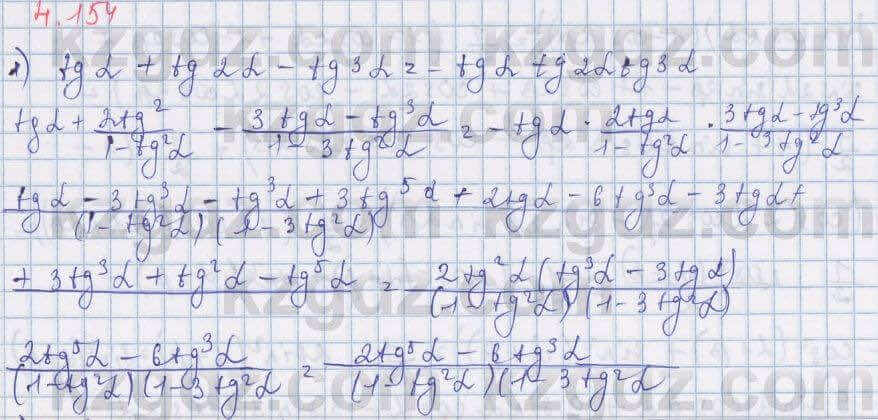 4.154
1) tg α + tg 2α - tg 3α = - tg α tg 2α tg 3α
tg α + 2tg² / 1-tg²α - 3tgα - tg³α / 1-3tg²α = - tg α · 2tgα / 1-tg²α · 3tgα - tg³α / 1-3tg²α
tgα - 3tg³α - tg³α + 3tg⁵α + 2tgα - 6tg³α - 3tgα + / (1-tg²α)(1-3tg²α)
+ 3tg³α + tg²α - tg⁵α = 2tg²α(tg³α - 3tgα) / (1-tg²α)(1-3tg²α)
2tg⁵α - 6tg³α / (1-tg²α)(1-3tg²α = 2tg⁵α - 6tg³α / (1-tg²α)(1-3tg²α
kzgdz.com